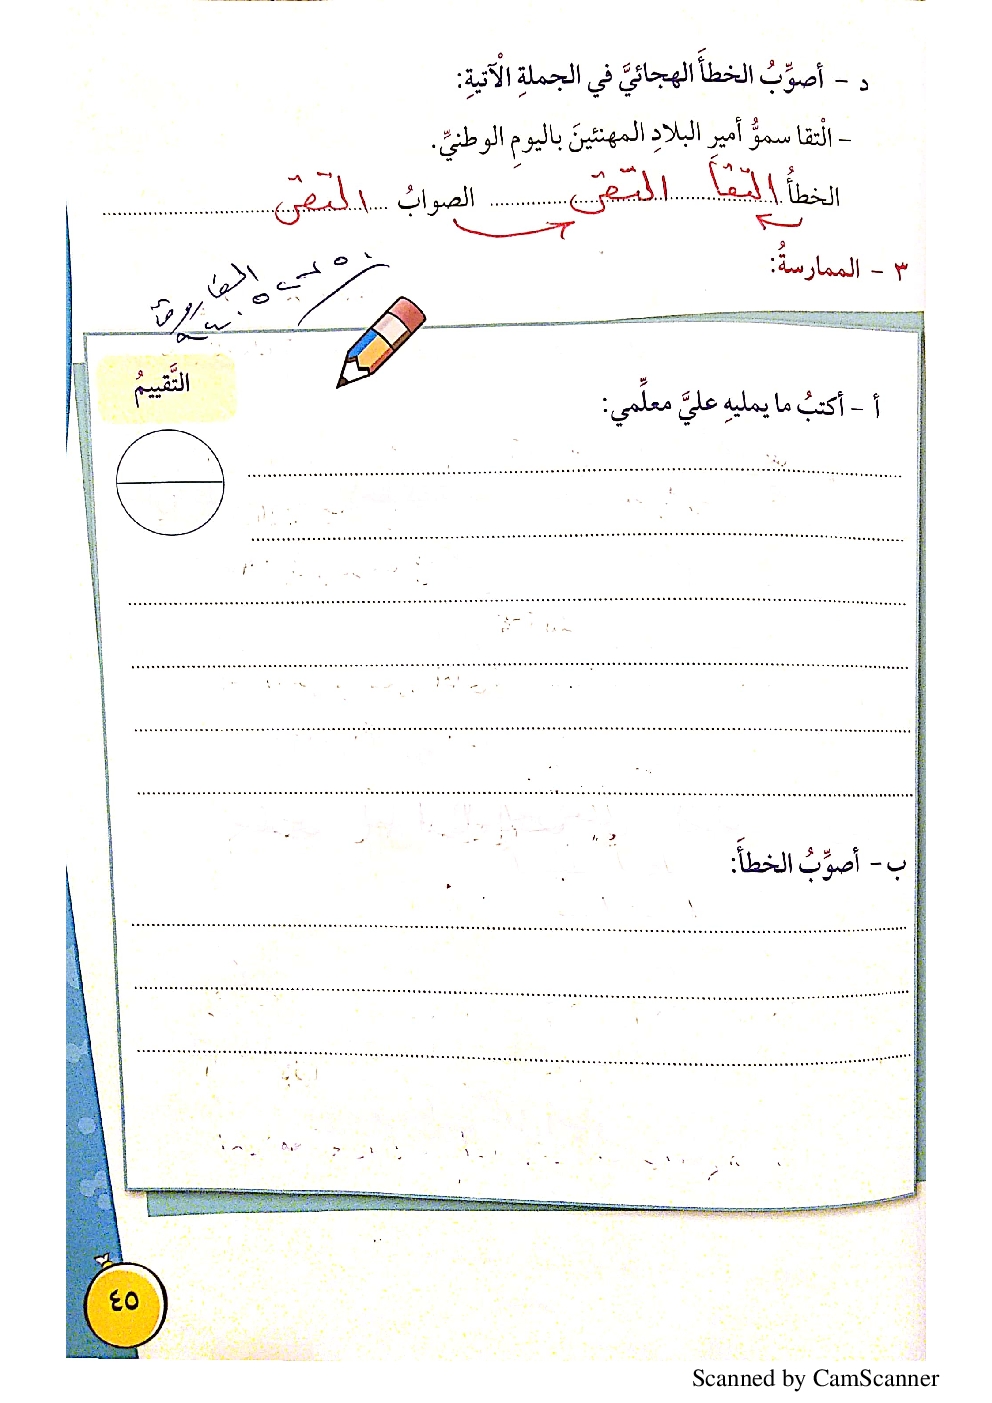 د - أصوِّبُ الخطأَ الهجائيَّ في الجملةِ الْآتيةِ:
- الْتقا سموُّ أميرِ البلادِ المهنئينَ باليومِ الوطنيِّ.
الخطأُ التقا التقى الصوابُ التقى
٣ - الممارسةُ:
التَّقييمُ
أ - أكتبُ ما يمليهِ عليَّ معلِّمي:
ب - أصوِّبُ الخطأَ:
٤٥
Scanned by CamScanner